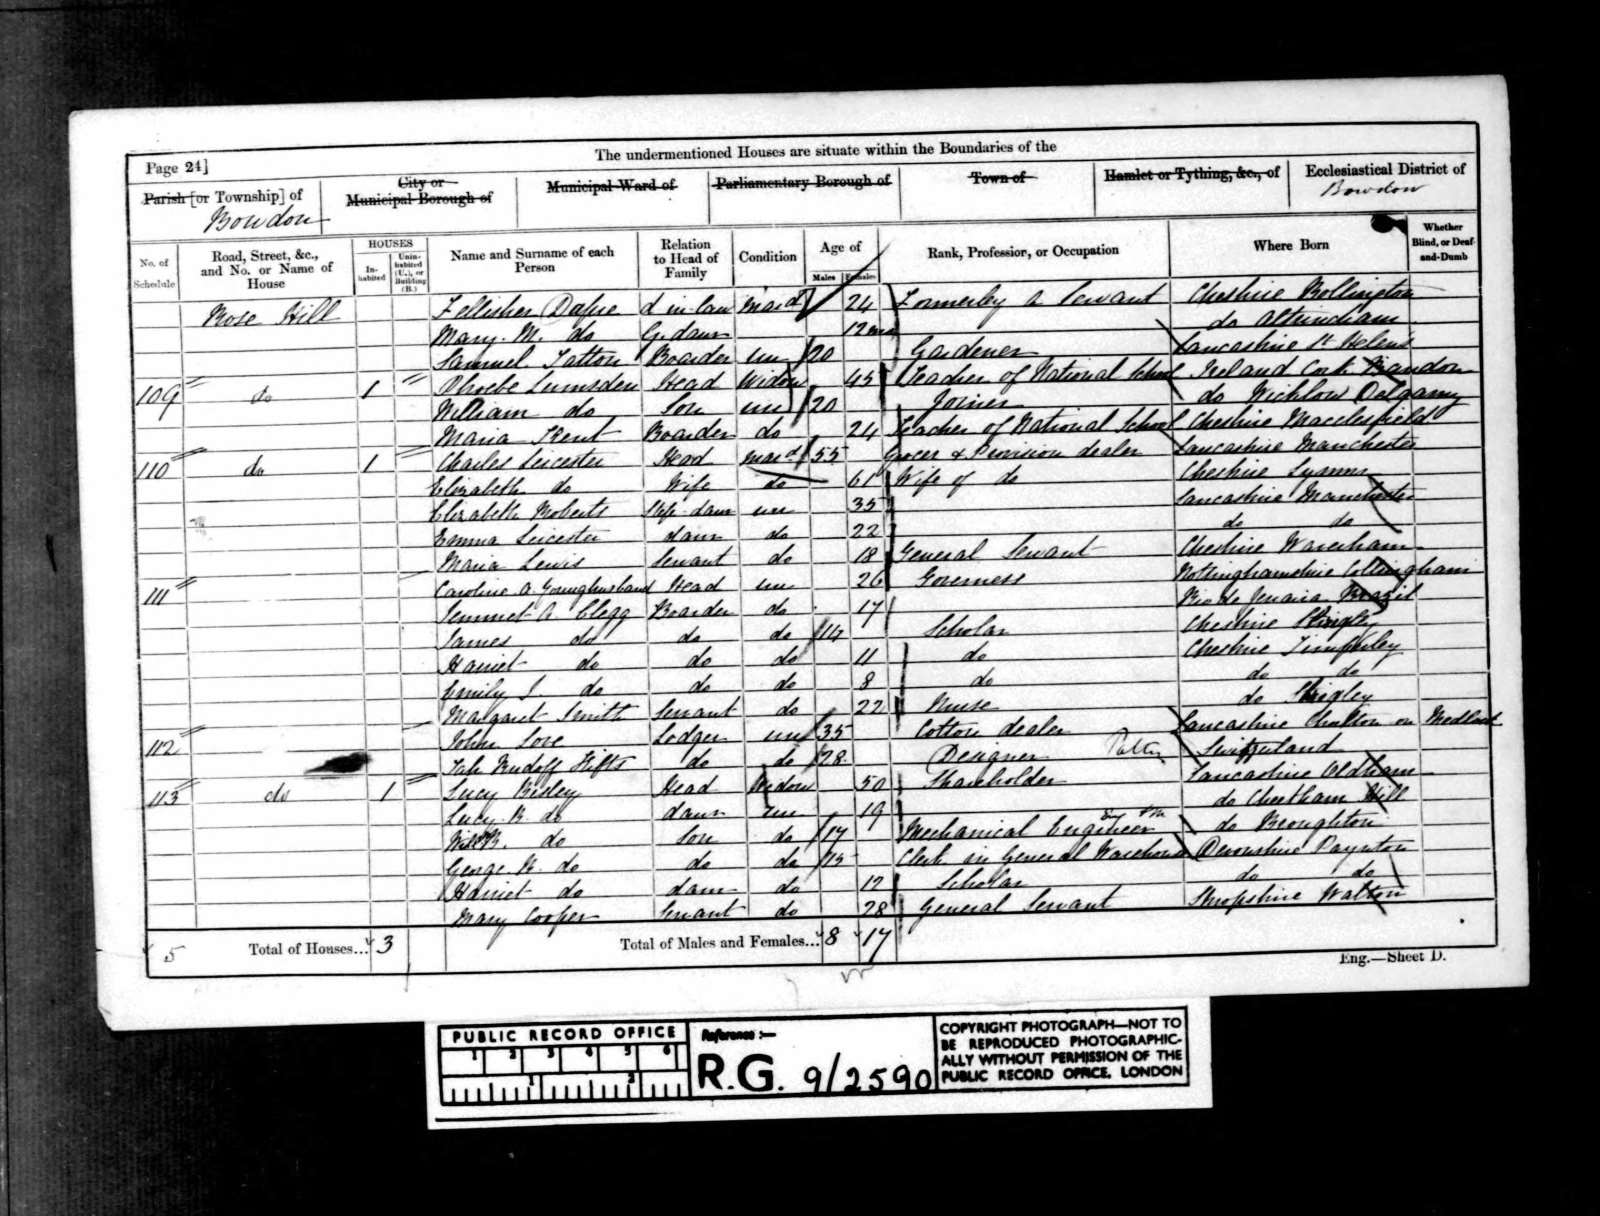 The undermentioned Houses are situate within the Boundaries of the
Page 24]
Parish [or Township] of
Bowdon
City or
Municipal Borough of
Municipal Ward of
Parliamentary Borough of
Town of
Hamlet or Tything, &c., of
Ecclesiastical District of
Bowdon
No. of Schedule
Road, Street, &c., and No. or Name of House
HOUSES
Inhabited
Uninhabited (U.), or Building (B.)
Name and Surname of each Person
Relation to Head of Family
Condition
Age of
Males
Females
Rank, Profession, or Occupation
Where Born
Whether Blind, or Deaf-and-Dumb
Rose Hill d in law Mard 24 Formerly a Servant Cheshire Bollington
Mary. M. do G. daur 12 mo do Altrincham
Samuel Tatton Boarder un 20 Gardener Lancashire St Helens
109 do 1 Phoebe Lumsden Head Widow 45 Teacher of National School Ireland Cork Bandon
William do Son un 20 Joiner do Wicklow Delgany
Maria Kent Boarder do 24 Teacher of National School Cheshire Macclesfield
110 do 1 Charles Leicester Head Mard 55 Grocer & Provision dealer Lancashire Manchester
Elizabeth do Wife do 61 Wife of do Cheshire Lymm
Elizabeth Roberts Step-daur un 35 Lancashire Manchester
Emma Leicester daur do 22 do do
Maria Lewis Servant do 18 General Servant Cheshire
111 Caroline A. Younghusband Head un 26 Governess Nottinghamshire Collingham
A Clegg Boarder do 17 Rio de Janaira Brazil
James do do do 14 Scholar Cheshire
Harriet do do do 11 do Cheshire Timperley
Emily J. do do do 8 do do do
Margaret Smith Servant do 22 Nurse do
112 John Lodger un 35 Cotton dealer Lancashire Chorlton on Medlock
Rudolf do do 28 Designer Switzerland
113 do 1 Lucy Head Widow 50 Shareholder Lancashire Oldham
Lucy do daur un 19 do Cheetham Hill
do Son do 17 Mechanical Engineer do Broughton
George do do do 15 Clerk in General Warehouse Devonshire Paynton
Harriet do daur do 12 Scholar do do
Mary Cooper Servant do 28 General Servant Shropshire Walton
5 Total of Houses... 3 Total of Males and Females... 8 17
Eng.—Sheet D.
PUBLIC RECORD OFFICE
1 2 3 4 5 6
1 2
Reference:—
R.G. 9/2590
COPYRIGHT PHOTOGRAPH—NOT TO
BE REPRODUCED PHOTOGRAPHIC-
ALLY WITHOUT PERMISSION OF THE
PUBLIC RECORD OFFICE, LONDON